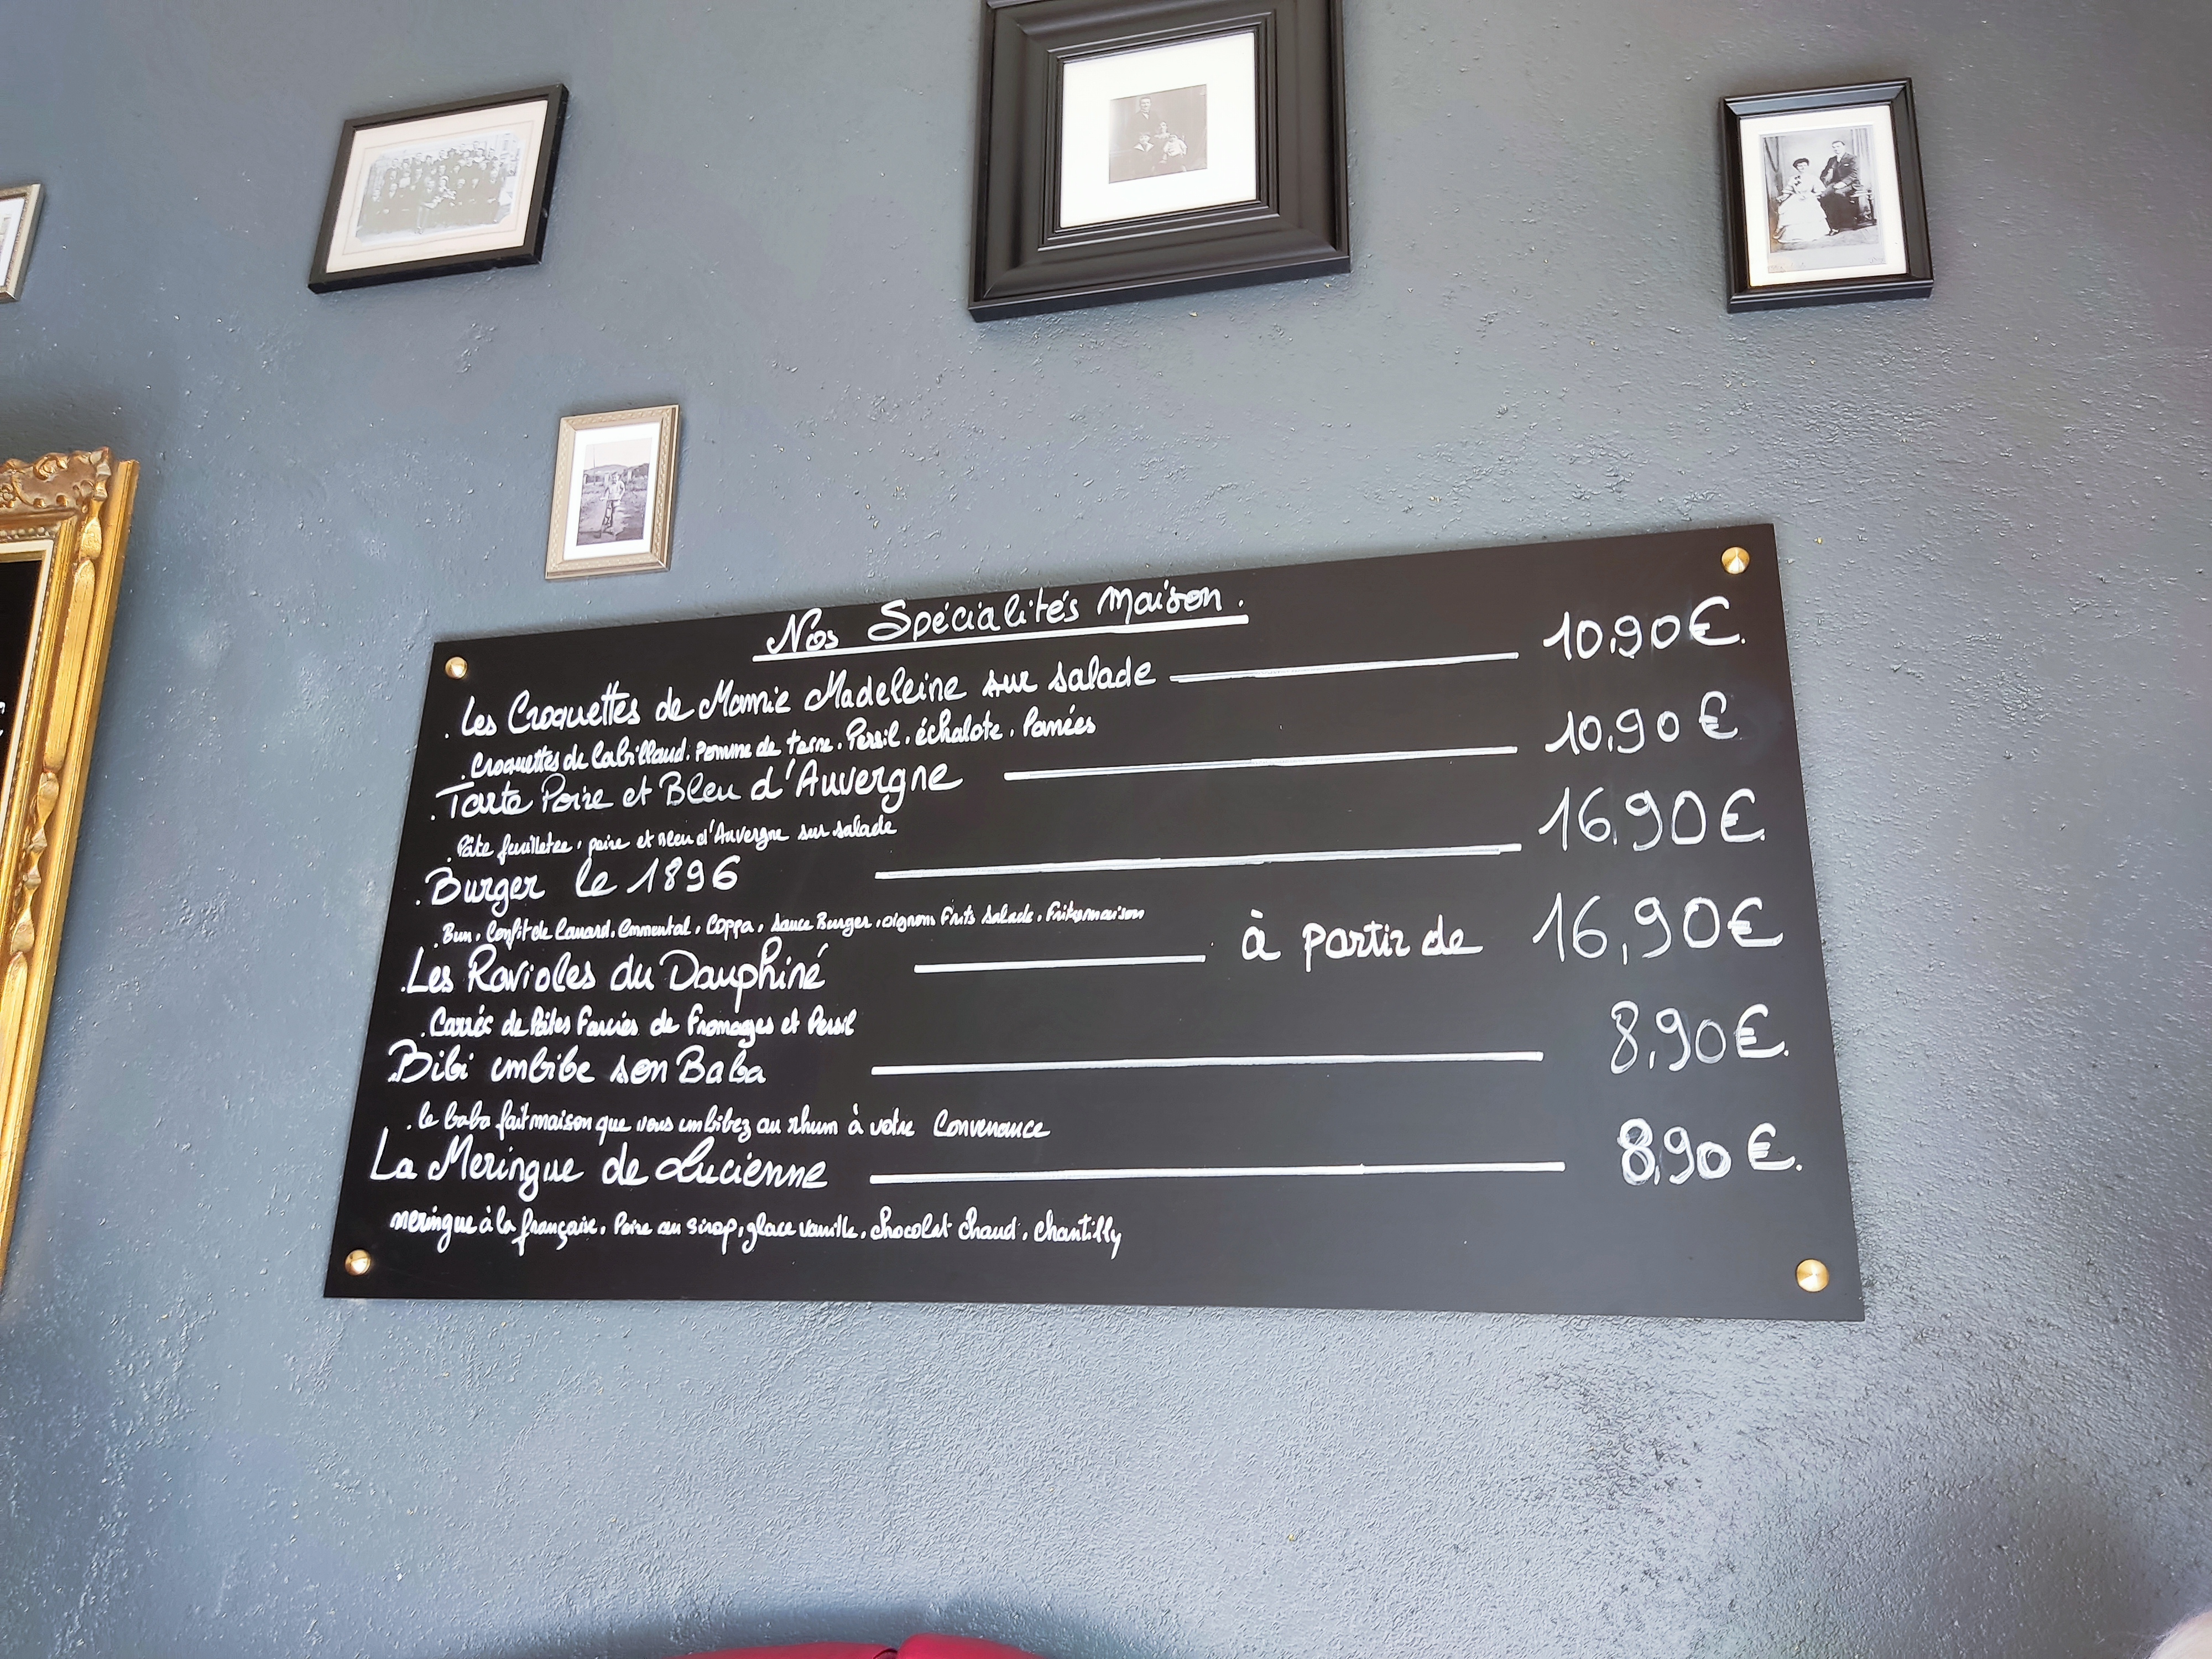 Nos Spécialités Maison.
. Les Croquettes de Mamie Madeleine sur salade 10,90€.
. Croquettes de Cabillaud. Pomme de terre. Persil. échalote. Panées
. Tarte Poire et Bleu d'Auvergne 10,90€
. Pâte feuilletée, poire et Bleu d'Auvergne sur salade
. Burger le 1896 16,90€.
. Bun, Confit de Canard, Emmental, Coppa, Sauce Burger, oignons Frits Salade, Frites maison
. Les Ravioles du Dauphiné à partir de 16,90€
. Carrés de Pâtes Farcies de Fromages et Persil
. Bibi imbibe son Baba 8,90€.
. le baba fait maison que vous imbibez au rhum à votre Convenance
La Meringue de Lucienne 8,90€.
meringue à la française, Poire au sirop, glace vanille, chocolat chaud, chantilly